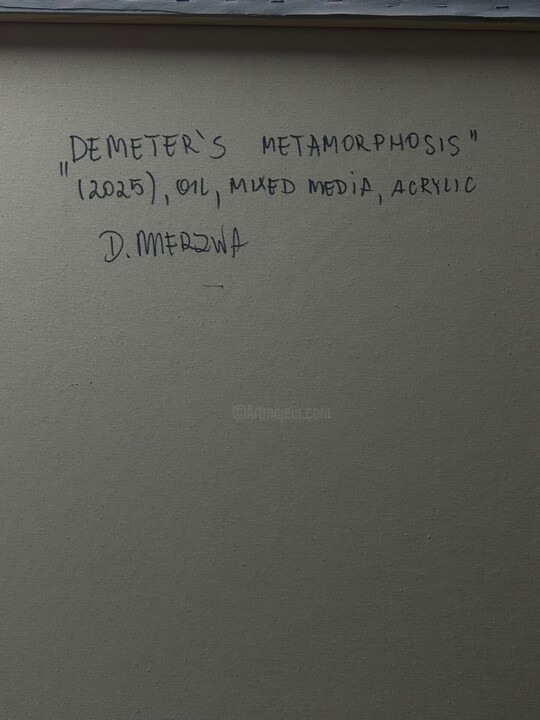 „DEMETER`S METAMORPHOSIS"
(2025), OIL, MIXED MEDIA, ACRYLIC
D. MIERZWA
©Artmajeur.com